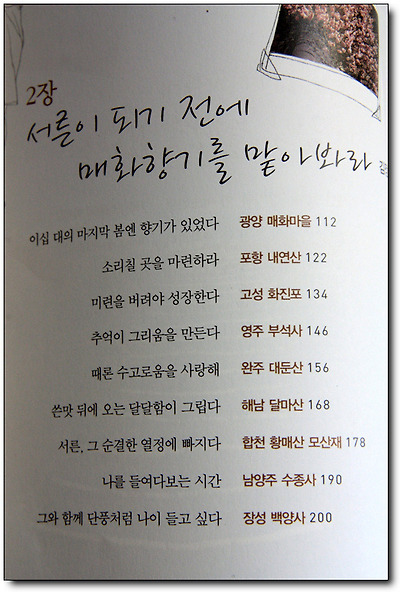 2장
서른이 되기 전에
매화향기를 맡아봐라
이십 대의 마지막 봄엔 향기가 있었다 광양 매화마을 112
소리칠 곳을 마련하라 포항 내연산 122
미련을 버려야 성장한다 고성 화진포 134
추억이 그리움을 만든다 영주 부석사 146
때론 수고로움을 사랑해 완주 대둔산 156
쓴맛 뒤에 오는 달달함이 그립다 해남 달마산 168
서른, 그 순결한 열정에 빠지다 합천 황매산 모산재 178
나를 들여다보는 시간 남양주 수종사 190
그와 함께 단풍처럼 나이 들고 싶다 장성 백양사 200